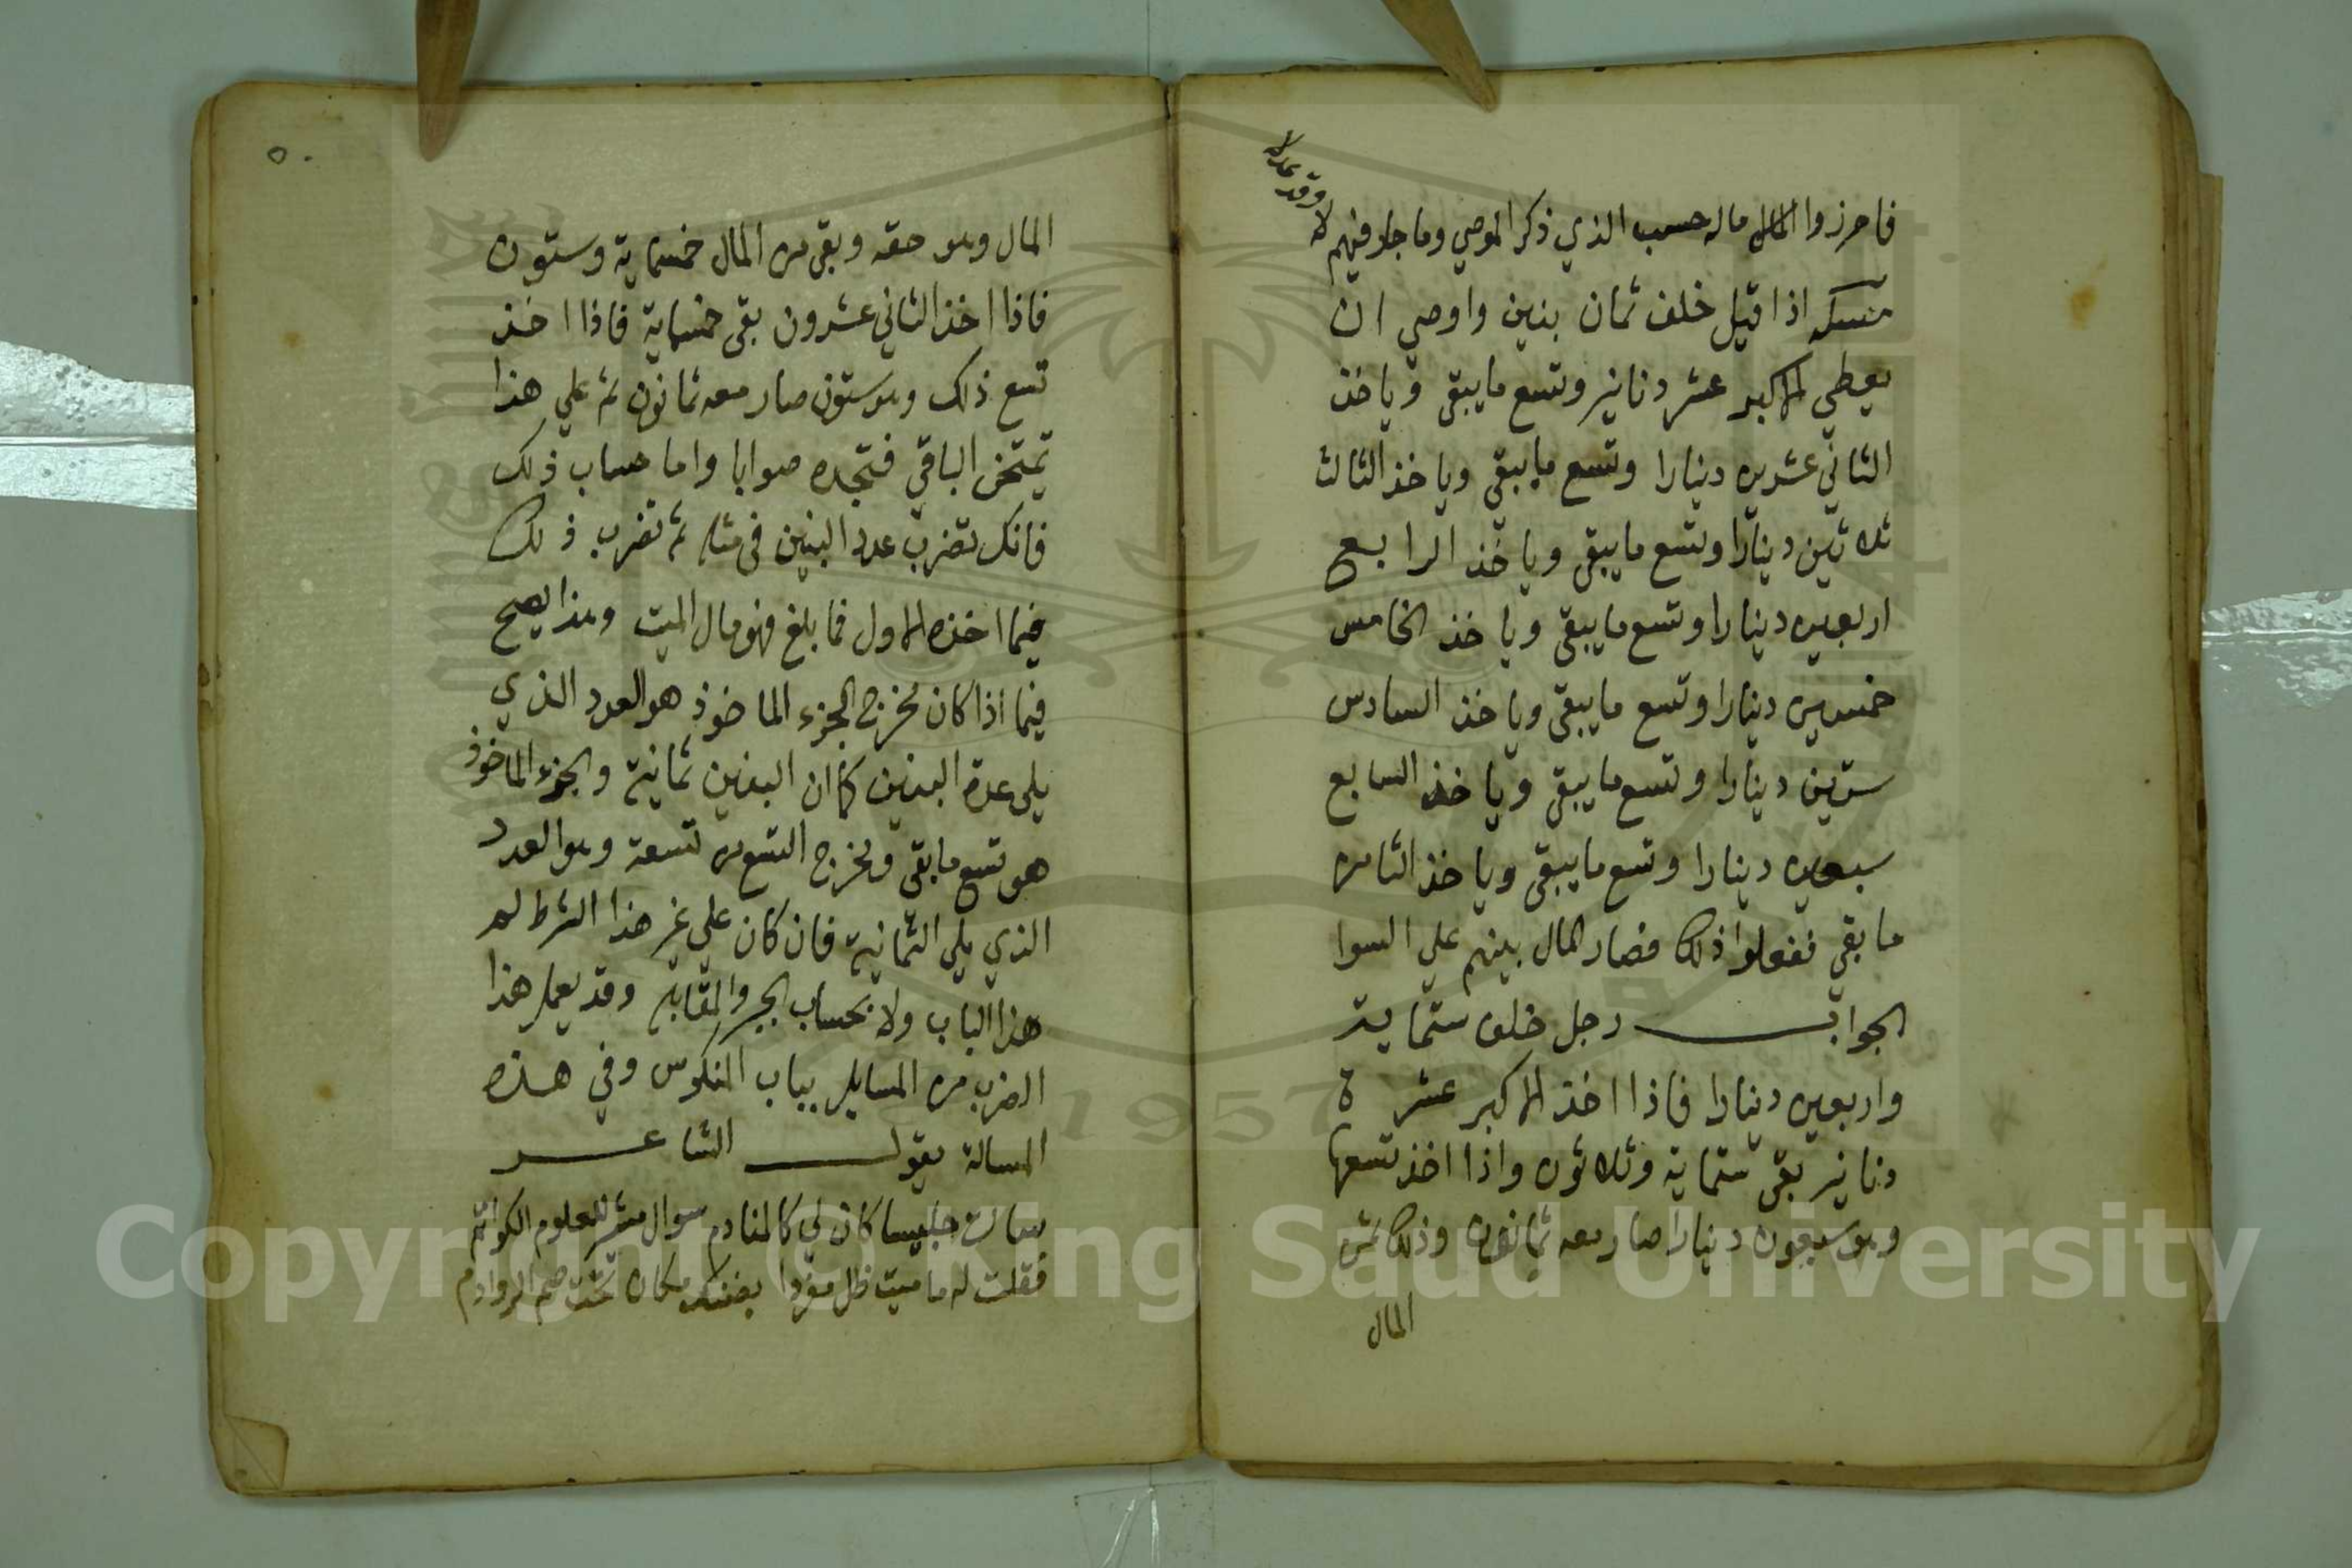 فاحرزوا المال ماله حسب الذي ذكر الموصي وما جار فيهم
لا وقد عدلا
مسئلة اذا قيل خلف ثمان بنين واوصي ان
يعطي الاكبر عشر دنانير وتسع ما يبقى وياخذ
الثاني عشرين دينارا وتسع ما يبقى وياخذ الثالث
ثلاثين دينارا وتسع ما يبقى وياخذ الرابع
اربعين دينارا وتسع ما يبقى وياخذ الخامس
خمسين دينارا وتسع ما يبقى وياخذ السادس
ستين دينارا وتسع ما يبقى وياخذ السابع
سبعين دينارا وتسع ما يبقى وياخذ الثامن
ما بقي ففعلوا ذلك فصار المال بينهم علي السوا
الجواب رجل خلف ستماية
واربعين دينارا فاذا اخذ الاكبر عشرة
دنانير بقى ستماية وثلاثون واذا اخذ تسعها
وهو سبعون دينارا صار معه ثمانون وذلك ثمن
المال
٥٠
المال وهو حقه وبقي من المال خمسماية وستون
فاذا اخذ الثاني عشرون بقى خمسماية فاذا اخذ
تسع ذلك وهو ستون صار معه ثمانون ثم علي هذا
تمتحن الباقي فتجده صوابا واما حساب ذلك
فانك تضرب عدد البنين في مثله ثم تضرب ذلك
فيما اخذه الاول فما بلغ فهو مال الميت وهذا يصح
فيما اذا كان مخرج الجزء الماخوذ هو العدد الذي
يلي عدة البنين كما ان البنين ثمانية والجزء الماخوذ
هو تسع ما بقى ومخرج التسع من تسعة وهو العدد
الذي يلي الثمانية فان كان علي غير هذا الشرط لم
هذا الباب ولا بحساب الجبر والمقابلة وقد يعمل هذا
الضرب من المسايل بباب المنكوس وفي هذه
المسالة يقول الشاعر
سالت جليسا كان لي كالمنادم سوال مثير للعلوم الكواتم
فقلت له ما ميت ظل مفردا بضنك مكان تحت صم الروادم